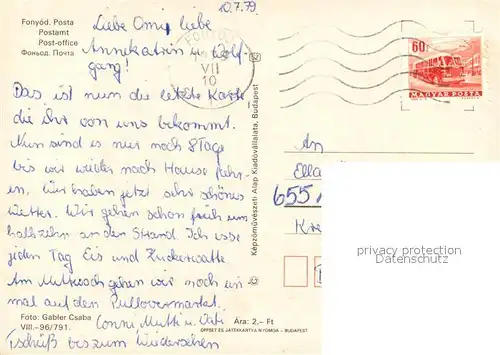 10.7.79
Fonyód. Posta
Postamt
Post-office
Фоньод. Почта
Liebe Omi, liebe
Annekatrin u. Wolf-
gang!
Das ist nun die letzte Karte
die ihr von uns bekommt.
Nun sind es nur noch 8 Tage
bis wir wieder nach Hause fahr-
en. Wir haben jetzt sehr schönes
Wetter. Wir gehen schon früh um
halbzehn an den Strand. Ich esse
jeden Tag Eis und Zuckerwatte.
Am Mittwoch gehen wir noch ein
mal auf den Pullovermarkt.
Conni, Mutti u. Vati
Tschüß bis zum Wiedersehen
Foto: Gabler Csaba
VIII.–96/791.
Ára: 2,– Ft
OFFSET ÉS JÁTÉKKÁRTYA NYOMDA – BUDAPEST
Képzőművészeti Alap Kiadóvállalata, Budapest
VII
10
60f
MAGYAR POSTA
An
Ella
655
Kre
privacy protection
Datenschutz